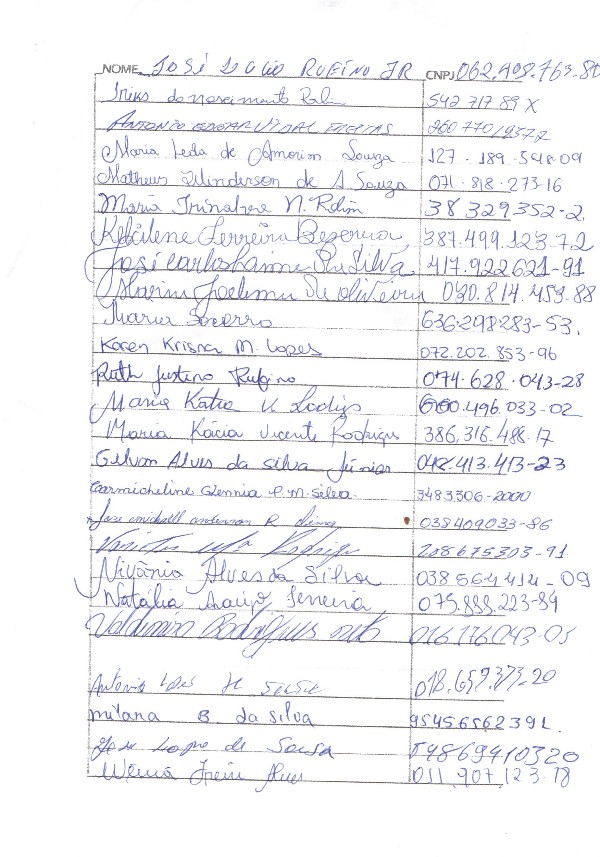 NOME JOSÉ LUCIO RUFINO JR CNPJ 062.498.763-80
do nascimento 542 717 89 X
ANTONIO EDGAR VIDAL FREITAS 260770/9377
Maria Leda de Amorim Souza 127.189.548-09
Matheus Winderson de A Souza 071.818.273-16
Maria N. Rolim 38 329352-2
Ferreira Bezerra 387.499.123-72
José Carlos Silva 417.922621-91
de oliveira 030.814.453.88
Maria Socorro 636.298283-53.
Karen Krisna M. Lopes 072.202.853-96
Ruth Justino Rufino 074.628.043-28
Maria Katia V. 600.496.033-02
Maria Kácia Vicente Rodrigues 386,316.488.17
Gilvan Alves da silva Júnior 048.413.413-23
Carmicheline P. M. Silva 3483306-2000
Jose anderson R Lima 038409033-86
218675303-91
Nivânia Alves da Silva 038564414-09
Natália Araújo Ferreira 075.888.223-84
Rodrigues 016.176.043-05
Antonio 018.659.373-20
milana B. da silva 95456562391.
Jose Lopes de Sousa 54869410320
Alves 011 907 123.78